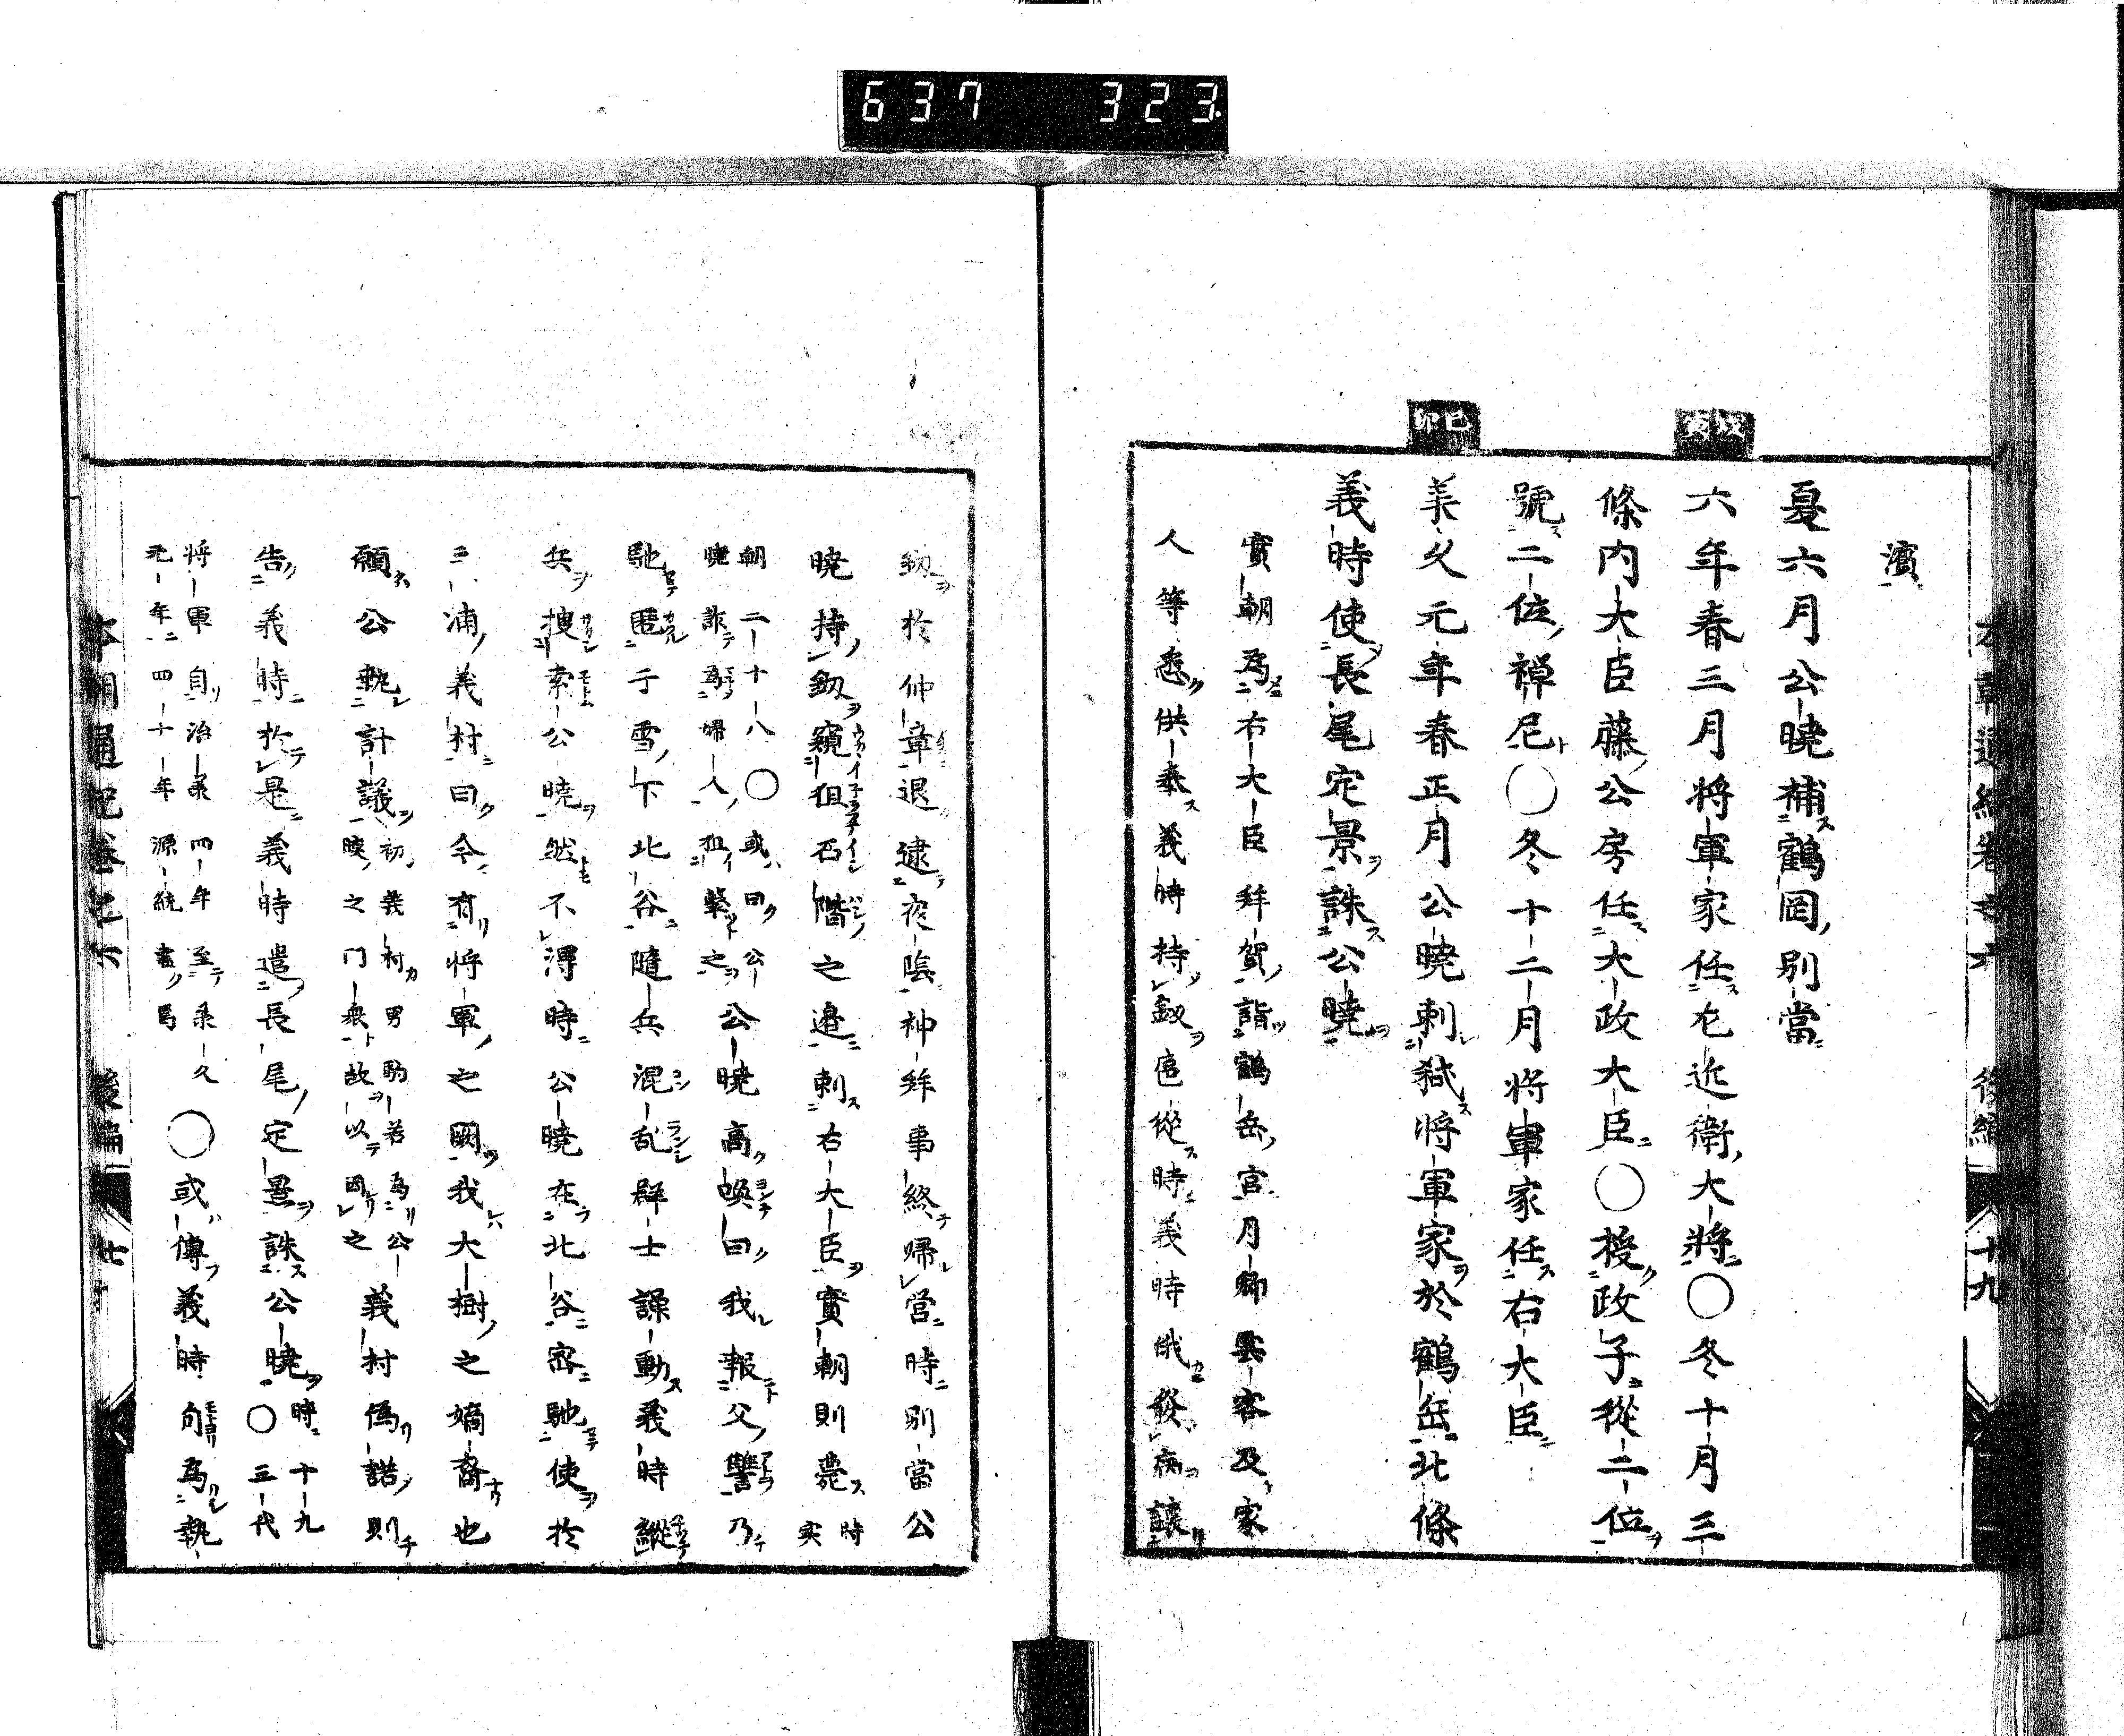 637 323
濱
夏六月公曉補鶴罡別當
戊寅
六年春三月將軍家任左近衛大將○冬十月三
條内大臣藤公房任大政大臣○授政子從二位
號二位禅尼○冬十二月將軍家任右大臣
己卯
羕久元年春正月公曉刺弑將軍家於鶴岳北條
義時使長尾定景誅公曉
實朝為右大臣拜賀詣鶴岳宮月卿雲客及家
人等悉供奉義時持釼扈從時義時俄發病讓
後編 十九
釼於仲章退逮夜陰神拜事終帰當時別當公
曉持釼窺狙石階之邉刺右大臣實朝則薨時実
朝二十八○或曰公
曉詐為婦人狙撃之公曉高喚曰我報父讐乃
馳匿于雪下北谷隨兵混乱群士譟動義時縱
兵捜索公曉然不淂時公曉在北谷密馳使於
三浦義村曰今有將軍之闕我大樹之嫡裔也
願公執計議初義村男駒若為公
曉之門衆故以因之義村偽諾則
告義時於是義時遣長尾定景誅公曉時十九
○三代
將軍自治羕四年至羕久
元年二四十年源統盡焉○或傳義時向為執
本朝通紀卷之六 後編 廿